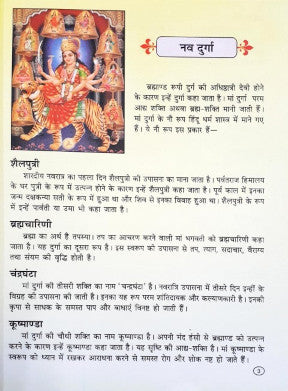 नव दुर्गा
ब्रह्माण्ड रूपी दुर्ग की अधिष्ठात्री देवी होने
के कारण इन्हें दुर्गा कहा जाता है। मां दुर्गा परम
आद्य शक्ति अथवा ब्रह्म-शक्ति मानी जाती हैं।
मां दुर्गा के नौ रूप हिंदू धर्म शास्त्र में माने गए
हैं। ये नौ रूप इस प्रकार हैं—
शैलपुत्री
शारदीय नवरात्र का पहला दिन शैलपुत्री की उपासना का माना जाता है। पर्वतराज हिमालय
के घर पुत्री के रूप में उत्पन्न होने के कारण इन्हें शैलपुत्री कहा जाता है। पूर्व काल में इनका
जन्म दक्षकन्या सती के रूप में हुआ था और शिव से इनका विवाह हुआ था। शैलपुत्री के रूप
में इन्हें पार्वती या उमा भी कहा जाता है।
ब्रह्मचारिणी
ब्रह्मा का अर्थ है तपस्या। तप का आचरण करने वाली मां भगवती को ब्रह्मचारिणी कहा
जाता है। यह दुर्गा का दूसरा रूप है। इस स्वरूप की उपासना से तप, त्याग, सदाचार, वैराग्य
तथा संयम की वृद्धि होती है।
चंद्रघंटा
मां दुर्गा की तीसरी शक्ति का नाम 'चन्द्रघंटा' है। नवरात्र उपासना में तीसरे दिन इन्हीं के
विग्रह की उपासना की जाती है। इनका यह रूप परम शांतिदायक और कल्याणकारी है। इनकी
कृपा से साधक के समस्त पाप और बाधाएं विनष्ट हो जाती हैं।
कूष्माण्डा
मां दुर्गा की चौथी शक्ति का नाम कूष्माण्डा है। अपनी मंद हंसी से ब्रह्माण्ड को उत्पन्न
करने के कारण इन्हें कूष्माण्डा कहा जाता है। यह सृष्टि की आद्य-शक्ति है। मां कूष्माण्डा के
स्वरूप को ध्यान में रखकर आराधना करने से समस्त रोग और शोक नष्ट हो जाते हैं।
3